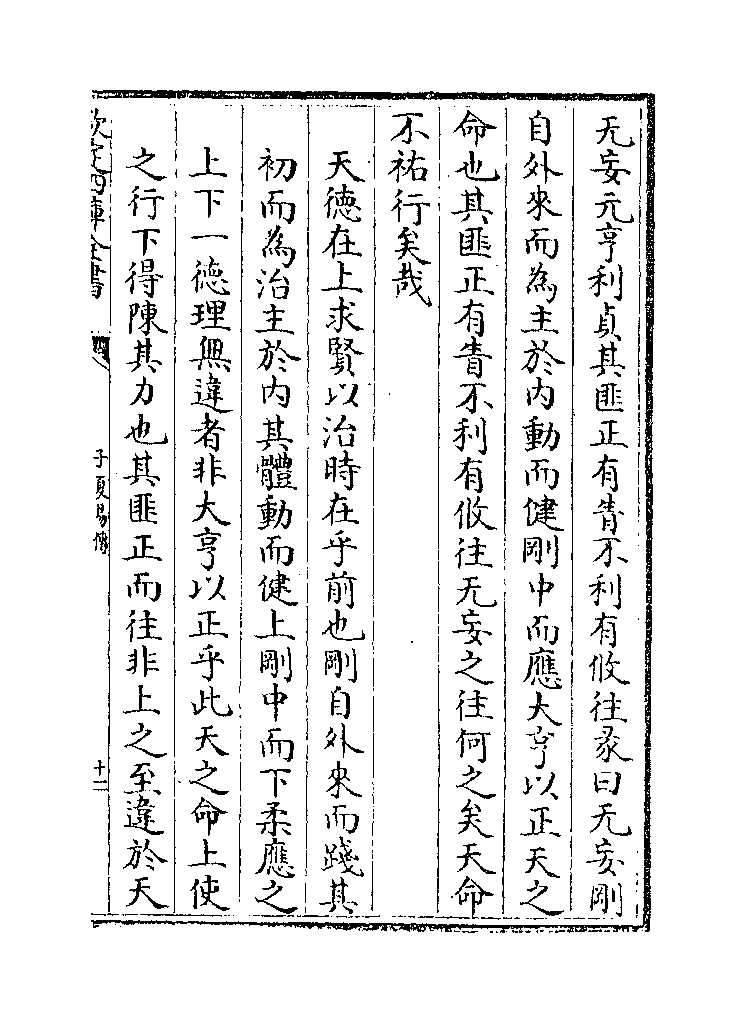 无妄元亨利貞其匪正有眚不利有攸往彖曰无妄剛
自外來而為主於内動而健剛中而應大亨以正天之
命也其匪正有眚不利有攸往无妄之往何之矣天命
不祐行矣哉
天德在上求賢以治時在乎前也剛自外來而踐其
初而為治主於内其體動而健上剛中而下柔應之
上下一德理無違者非大亨以正乎此天之命上使
之行下得陳其力也其匪正而往非上之至違於天
欽定四庫全書
子夏易傳
十二